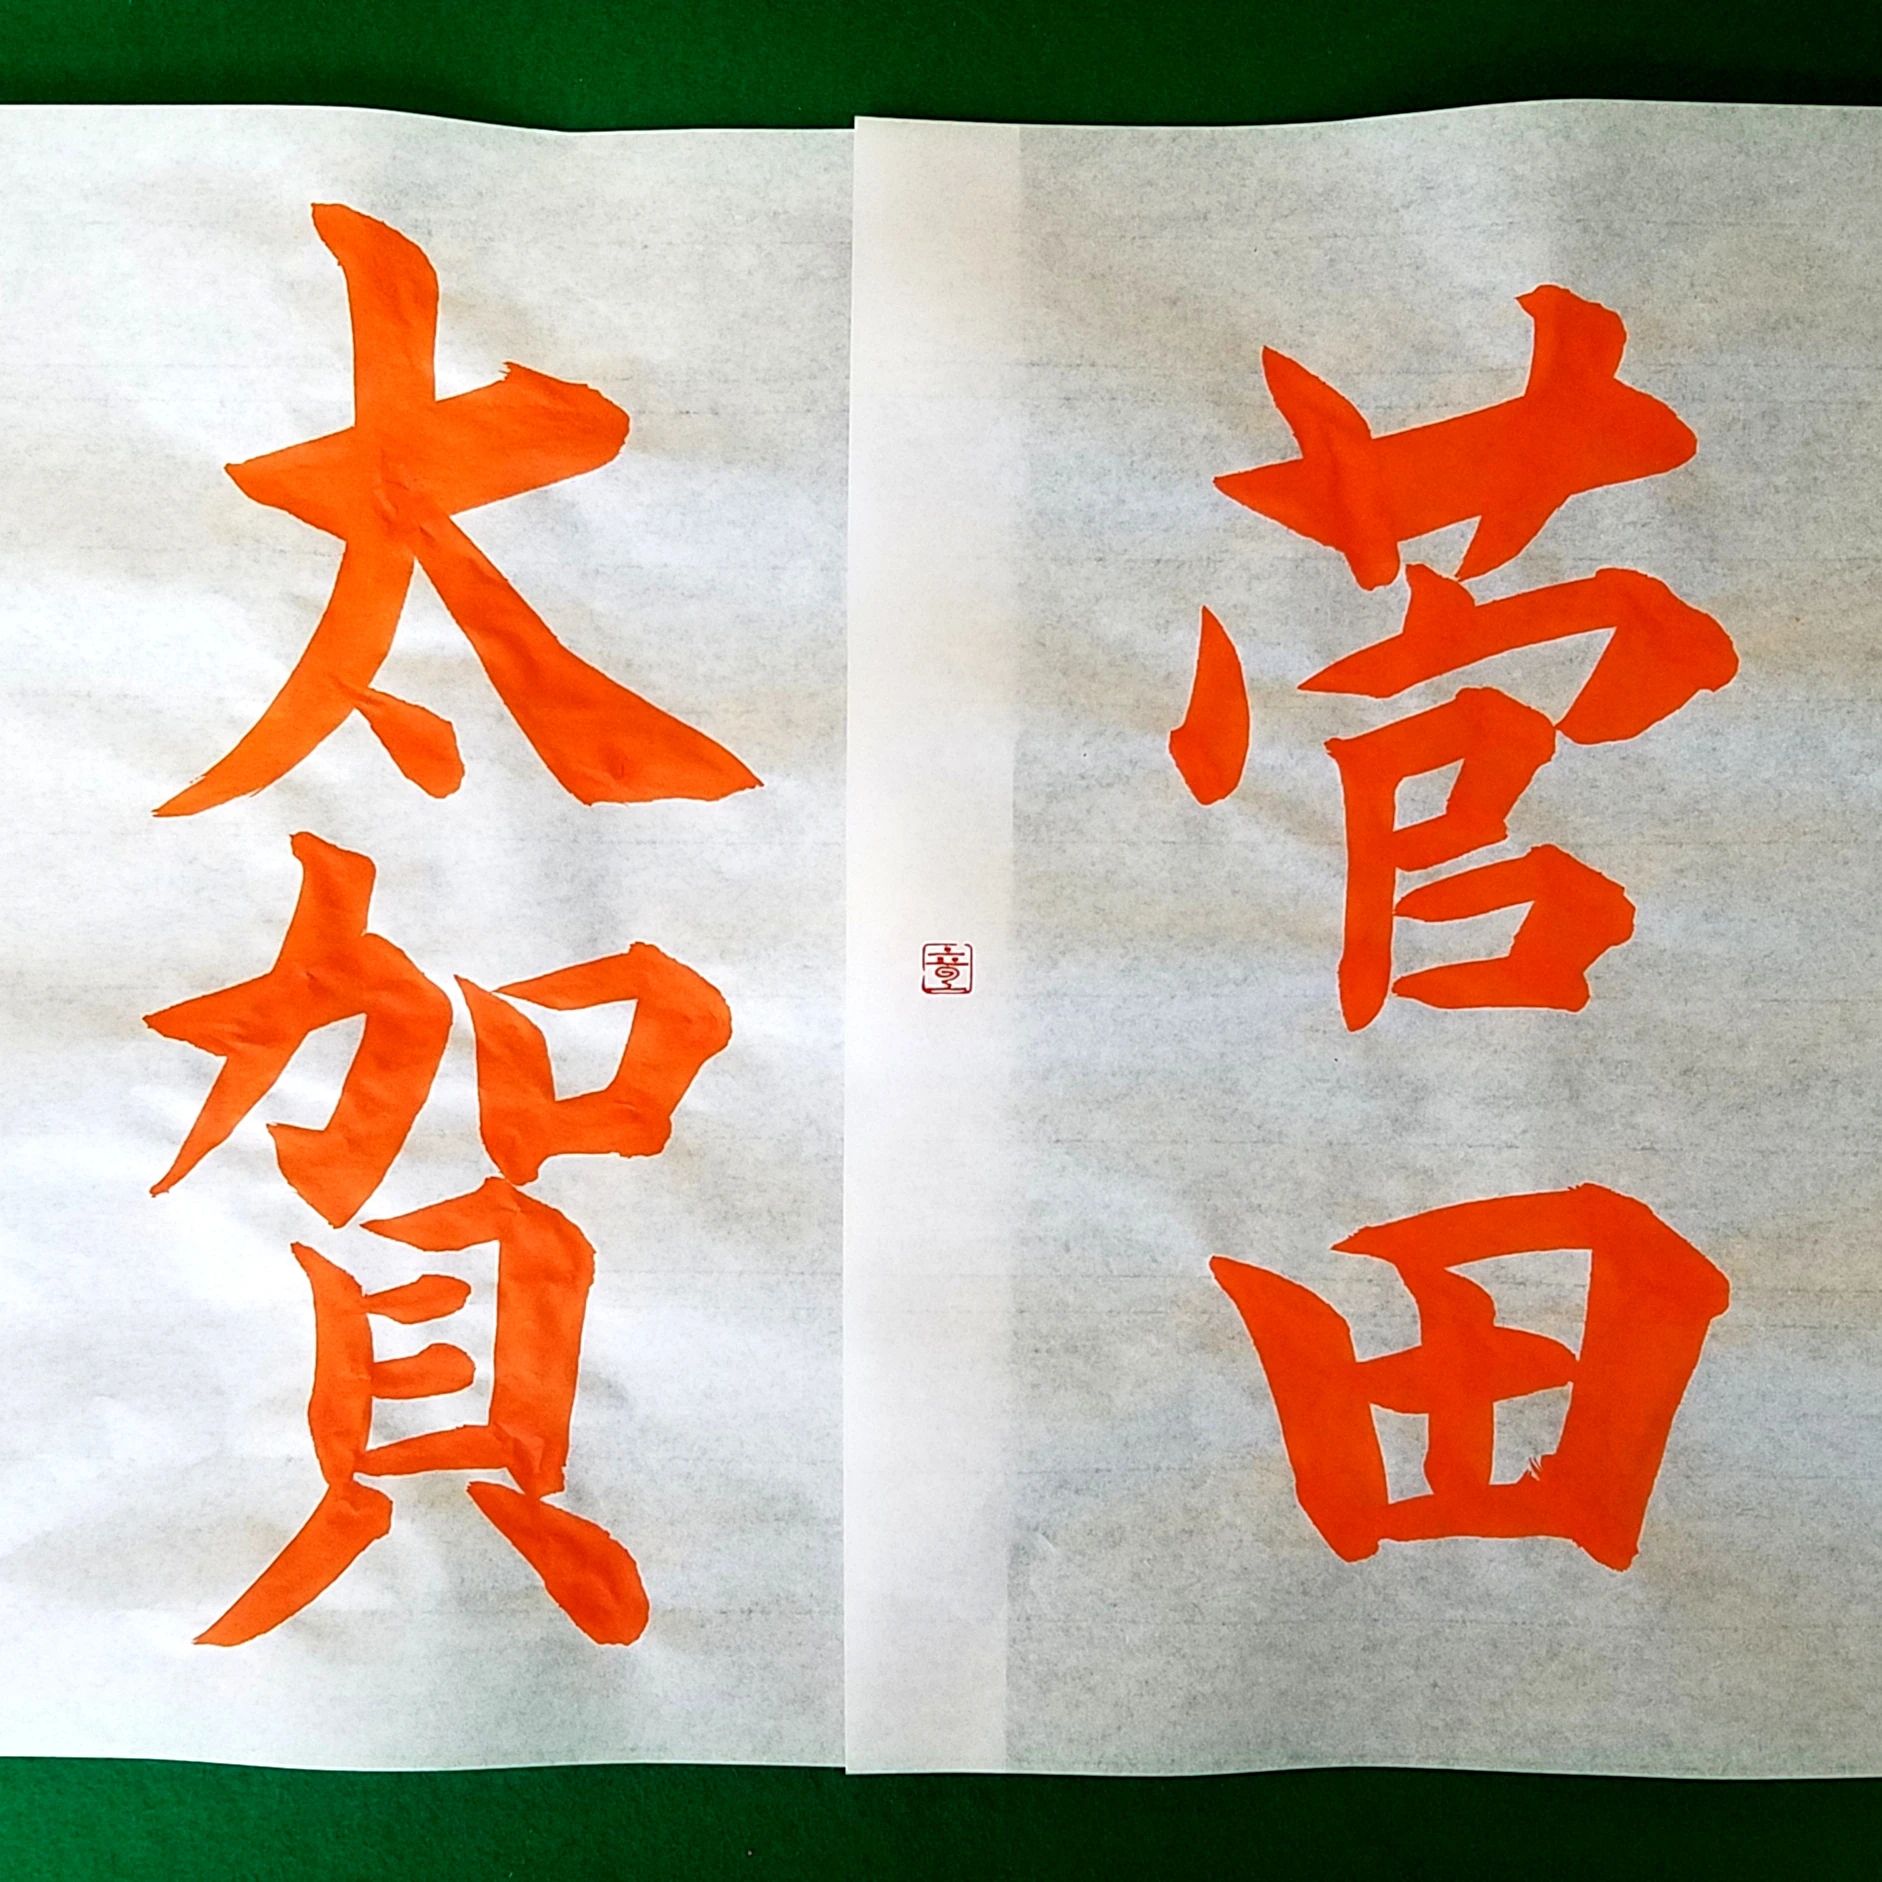 菅田
太賀